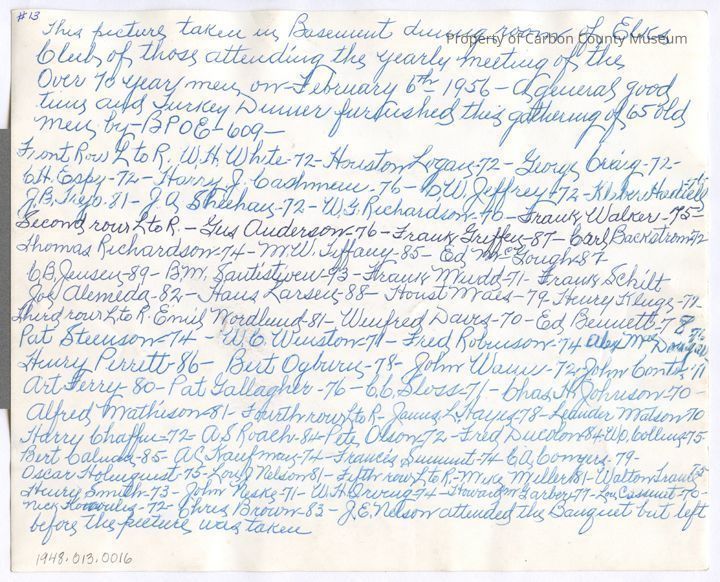 #13
Property of Carbon County Museum
This picture taken in Basement dining room of Elks
Club, of those attending the yearly meeting of the
Over 70 year men, on February 6th 1956 - A general good
time and Turkey Dinner furnished this gathering of 65 old
men, by - BPOE - 609 -
Front Row L to R. W.H. White - 72 - Houston Logan - 72 - George Craig - 72 -
C.H. Espy - 72 - Harry J. Cashman - 76 - D.W. Jeffrey - 72 -
J.B. 81 - J.A. Sheehan - 72 - W.G. Richardson - 70 - Frank Walker - 75 -
Second row L to R. - Gus Anderson - 76 - Frank Griffey - 87 - Carl Backstrom 72
Thomas Richardson - 74 - M.W. Tiffany - 85 - Ed McGough - 87 -
C.B. Jensen - 89 - B.M. 73 - Frank Mudd - 71 - Frank Schilt
Joe Alemeda - 82 - Hans Larsen - 88 - Houst Maes - 79 Henry Kluge - 72
Third row L to R. Emil Nordlund - 81 - Winfred Davis - 70 - Ed Bennett - 78
Pat Steenson - 74 - W.C. Winston - 71 - Fred Robinson - 74 Alex
Henry Perrett - 86 - Bert Ogburn - 78 - John 72 - John
Art Ferry 80 - Pat Gallagher - 76 - C.C. Gloss - 71 - Chas. H. Johnson - 70 -
Alfred Mathieson - 81 - Fourth row L to R - James L. Hays - 78 - Leander Matson 70
Harry Chaffin - 72 - A.S. Roach - 84 - Pete Olson - 72 - Fred Ducolon - 84 - W.O. Collins - 75 -
Bert 85 - A.C. Kaufman - 74 - Francis Summit - 74 C.A. Conyers - 79 -
Oscar Holmquist - 75 - Lou J. Nelson 81 - Fifth row L to R. - Mike Miller 81 - Walton 75
Henry Smith - 73 - John 71 - W.H. Irving - 74 - Howard M. Garber - 77 - 70 -
Nick 72 - Chris Brown - 83 - J.E. Nelson attended the Banquet but left
before the picture was taken
1948.013.0016